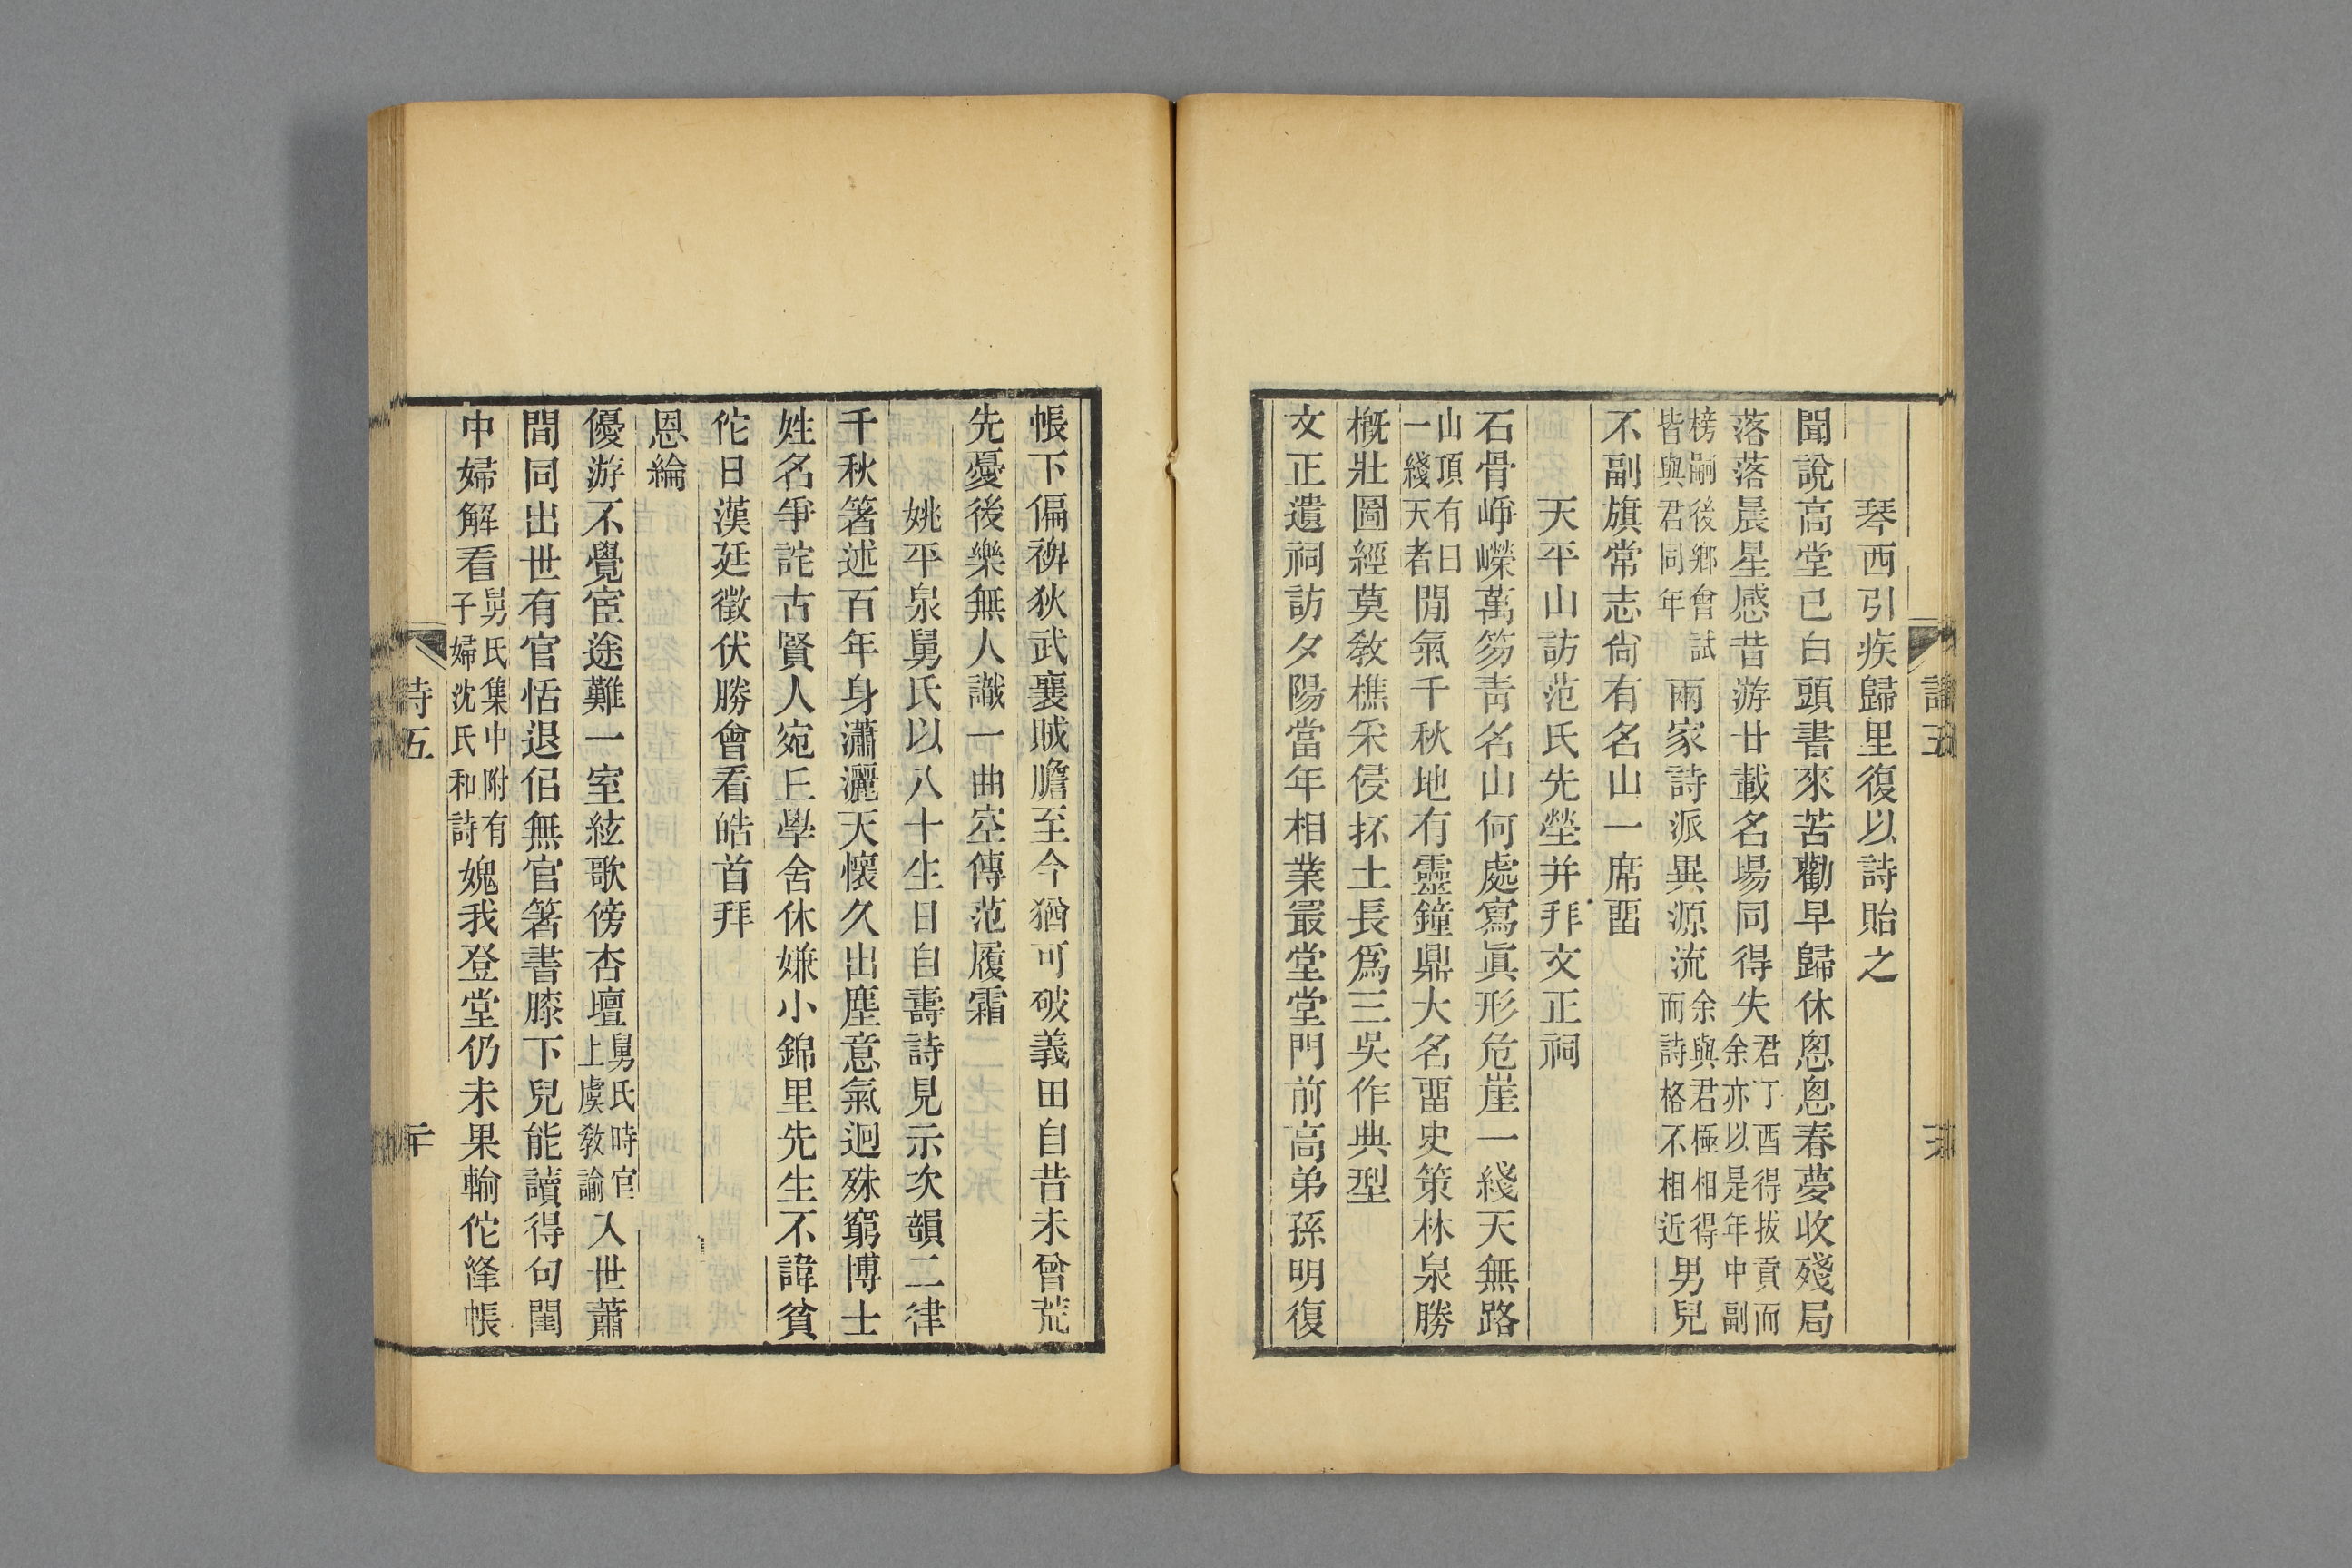 琴西引疾歸里復以詩貽之
聞說高堂已白頭書來苦勸早歸休悤悤春夢收殘局
落落晨星感昔游廿載名場同得失君丁酉得拔貢而余亦以是年中副
榜嗣後鄉會試皆與君同年兩家詩派異源流余與君極相得而詩格不相近男兒
不副旗常志尙有名山一席畱
天平山訪范氏先塋并拜文正祠
石骨崢嶸萬笏靑名山何處寫眞形危崖一綫天無路
山頂有曰一綫天者閒氣千秋地有靈鐘鼎大名畱史策林泉勝
槪壯圖經莫敎樵采侵抔土長爲三吳作典型
文正遺祠訪夕陽當年相業冣堂堂門前高弟孫明復
詩五
帳下偏裨狄武襄賊膽至今猶可破義田自昔未曾荒
先憂後樂無人識一曲空傳范履霜
姚平泉舅氏以八十生日自壽詩見示次韻二律
千秋箸述百年身瀟灑天懷久出塵意氣迥殊窮博士
姓名爭詫古賢人宛丘學舍休嫌小錦里先生不諱貧
佗日漢廷徵伏勝會看皓首拜
恩綸
優游不覺宦途難一室絃歌傍杏壇舅氏時官上虞敎諭入世蕭
閒同出世有官恬退侣無官箸書膝下兒能讀得句閨
中婦解看舅氏集中附有子婦沈氏和詩媿我登堂仍未果輸佗絳帳
詩五
二十